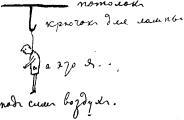 потолок
крючок для лампы
а это я...
подо мной воздух.